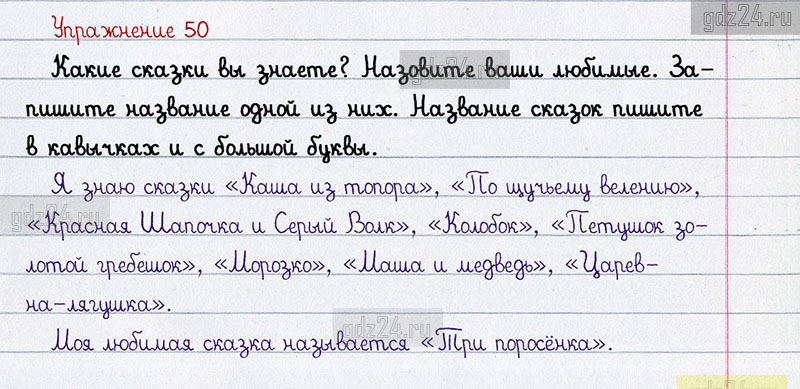 gdz24.ru
Упражнение 50
Какие сказки вы знаете? Назовите ваши любимые. За-
gdz24.ru
пишите название одной из них. Название сказок пишите
в кавычках и с большой буквы.
Я знаю сказки «Каша из топора», «По щучьему велению»,
gdz24.ru
«Красная Шапочка и Серый Волк», «Колобок», «Петушок зо-
лотой гребешок», «Морозко», «Маша и медведь», «Царев-
на-лягушка».
gdz24.ru
Моя любимая сказка называется «Три поросёнка».